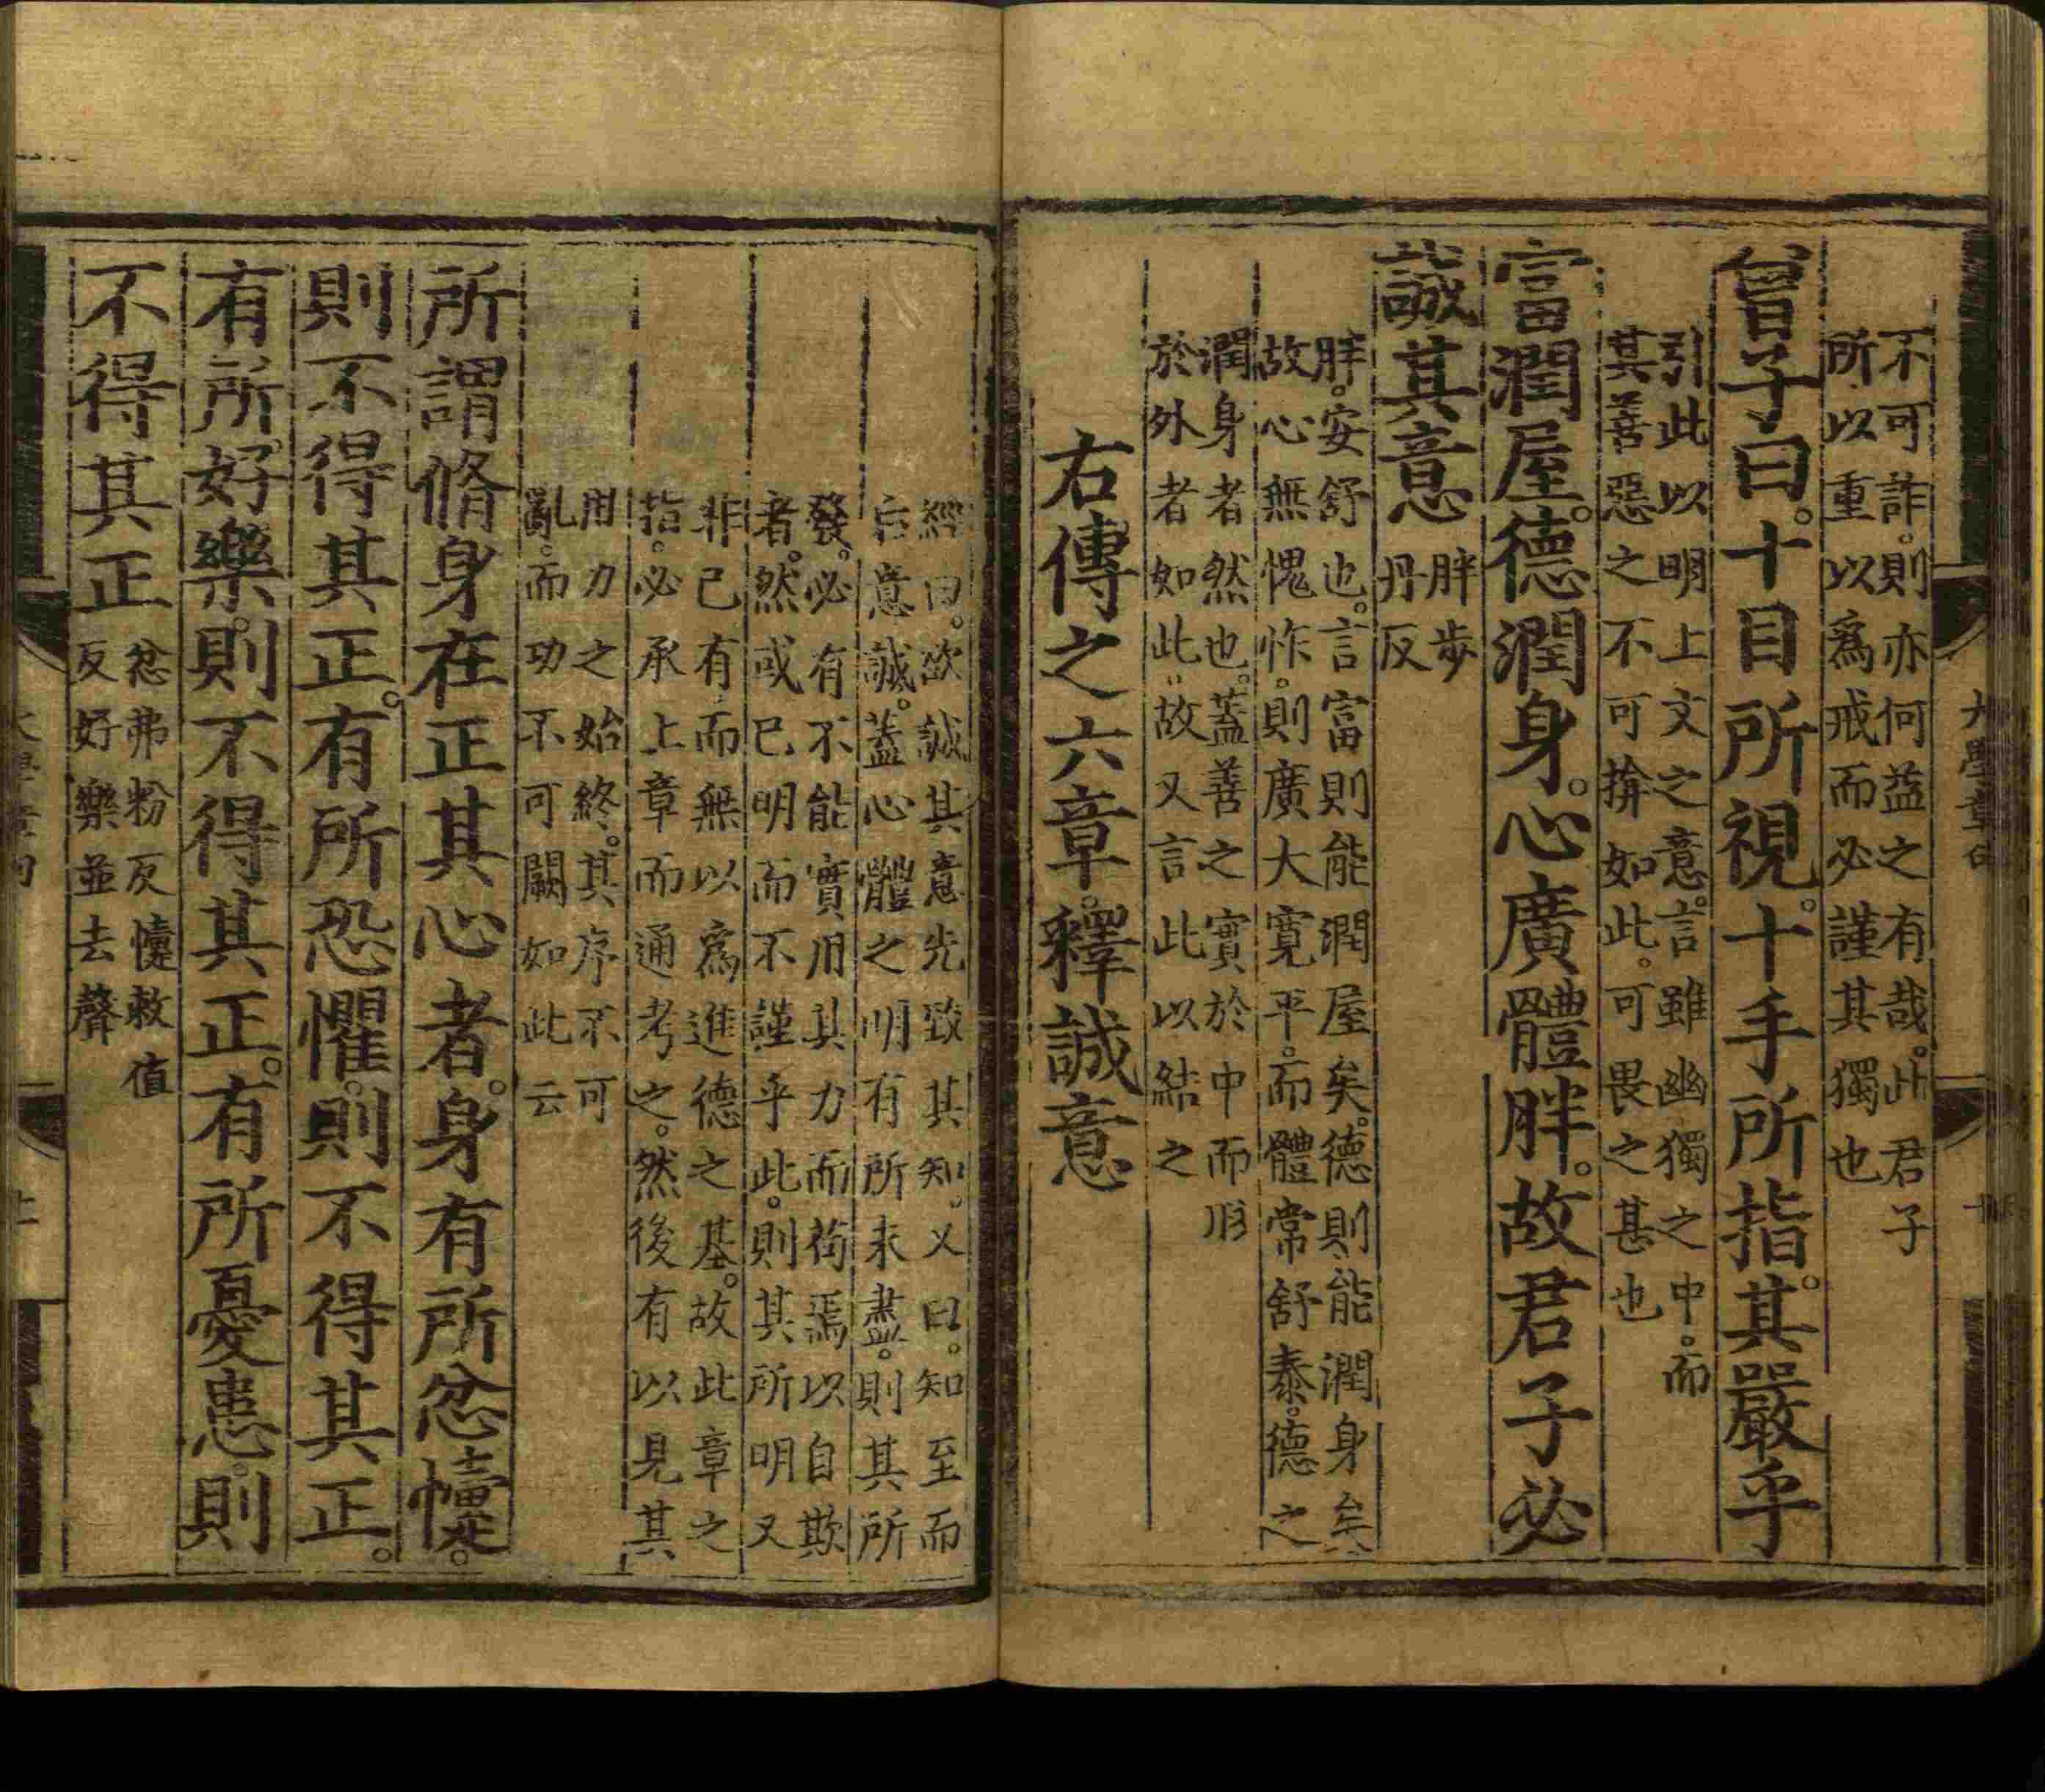 不可詐。則亦何益之有哉。此君子
所以重以爲戒而必謹其獨也
曾子曰。十目所視。十手所指。其嚴乎
引此以明上文之意。言雖幽獨之中。而
其善惡之不可揜如此。可畏之甚也
富潤屋。德潤身。心廣體胖。故君子必
誠其意
胖步
丹反
胖。安舒也。言富則能潤屋矣。德則能潤身矣
故心無愧怍。則廣大寬平。而體常舒泰。德之
潤身者然也。蓋善之實於中而形
於外者如此。故又言此以結之
右傳之六章。釋誠意
經曰。欲誠其意先致其知。又曰。知至而
后意誠。蓋心體之明有所未盡。則其所
發。必有不能實用其力而苟焉以自欺
者。然或已明而不謹乎此。則其所明又
非已有而無以爲進德之基。故此章之
指。必承上章而通考之。然後有以見其
用力之始終。其序不可
亂。而功不可闕如此云
所謂脩身在正其心者。身有所忿懥。
則不得其正。有所恐懼。則不得其正。
有所好樂。則不得其正。有所憂患。則
不得其正
忿弗粉反懥敕值
反好樂並去聲